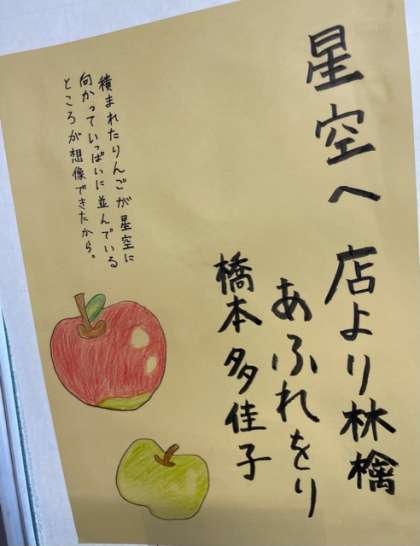 星空へ 店より林檎
あふれをり
橋本多佳子
積まれたりんごが星空に
向かっていっぱいに並んでいる
ところが想像できたから。